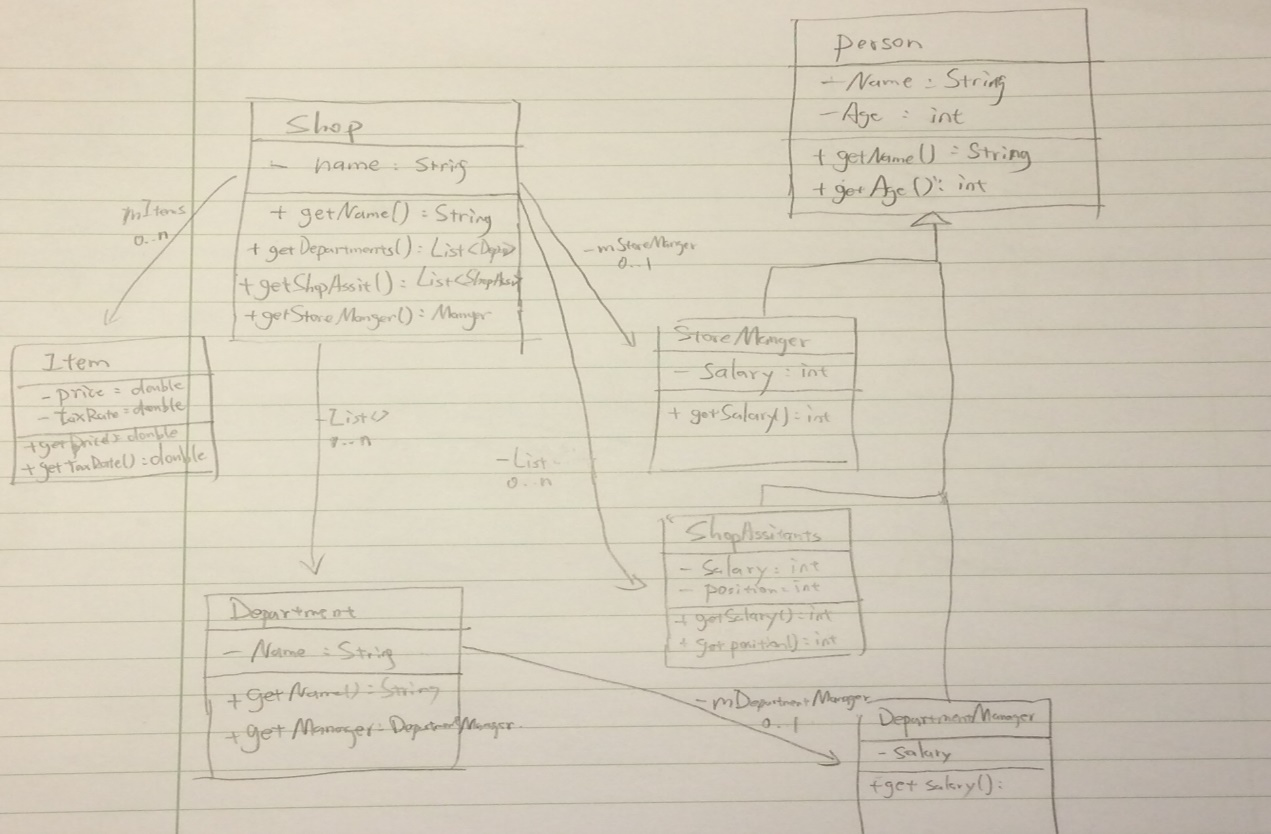 Person
- Name : String
- Age : int
+ getName() : String
+ getAge() : int
Shop
- name : Strig
+ getName() : String
+ getDepartments() : List<Dep>
+ getShpAssit() : List<ShopAssi
+ getStoreManger() : Manger
mItems
0..n
- mStoreManger
0..1
StoreManger
- Salary : int
+ getSalary() : int
Item
- price = double
- taxRate = double
+ getPrice = double
+ get TaxRate() : double
- List<>
1..n
- List
0..n
ShopAssitants
- Salary : int
- position = int
+ getSalary() : int
+ get position() = int
Department
- Name : String
+ getName() : String
+ getManager : DepartmentManger
- mDepartmentManager
0..1
DepartmentManager
- salary
+ get salary() :